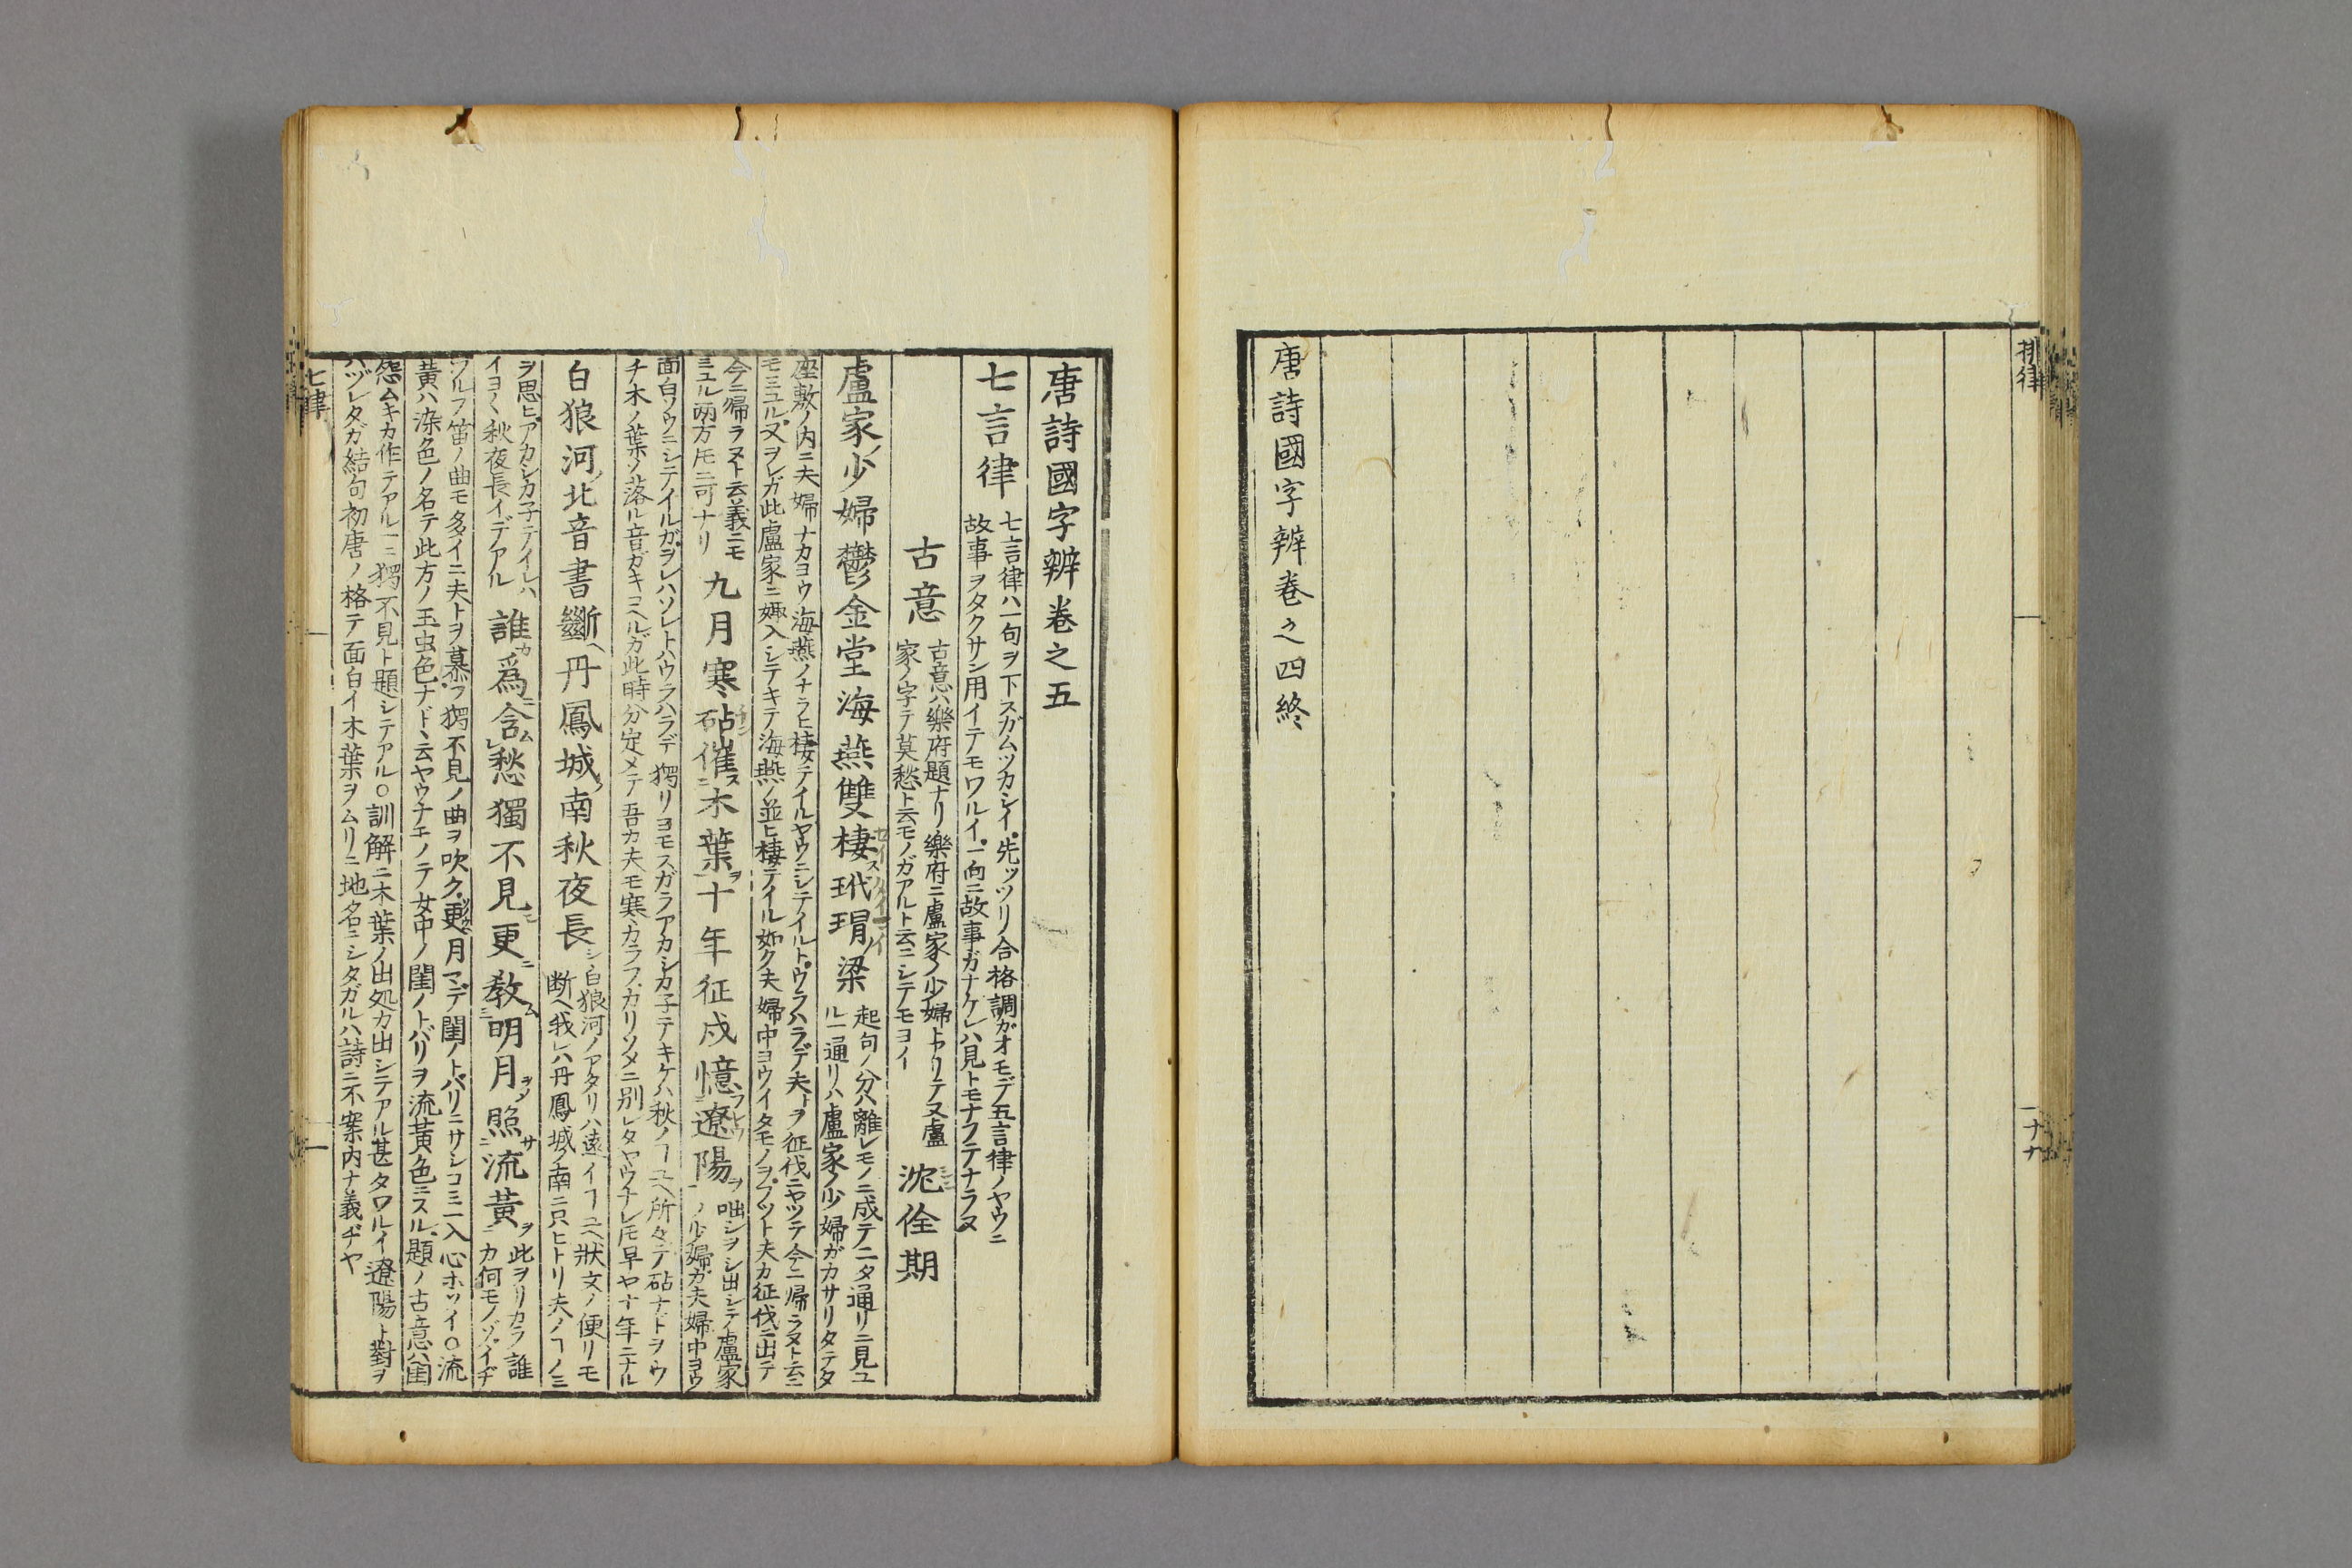 排律
一
二十九
唐詩國字辨卷之四終
唐詩國字辨卷之五
七言律
七言律ハ一句ヲ下スガムツカシイ先ッツリ合格調ガオモデ五言律ノヤウニ
故事ヲタクサン用イテモワルイ一向ニ故事ガナケレハ見トモナフテナラヌ
古意
古意ハ樂府題ナリ樂府ニ盧家ノ少婦トアリテ又盧
家ノ字テ莫愁ト云モノガアルト云ニシテモヨイ
沈佺期
盧家少婦鬱金堂海燕雙棲玳瑁梁
起句ノ分ハ離レモノニ成テ二タ通リニ見ユ
ル一通リハ盧家ノ少婦ガカサリタテタ
座敷ノ内ニ夫婦ナカヨウ海燕ノナラヒ棲テイルヤウニシテイルトウラハラデ夫ヲ征伐ニヤッテ今ニ帰ラヌト云ニ
モミユル又ヲレガ此盧家ニ娵入シテキテ海燕ノ並ヒ棲テイル如ク夫婦中ヨウイタモノヲフット夫カ征伐ニ出テ
今ニ帰ラヌト云義ニモ
ミユル両方モニ可ナリ
九月寒砧催木葉十年征戍憶遼陽
咄シヲシ出シテ盧家
ノ少婦ガ夫婦中ヨウ
面白ノウニシテイルガヲレハソレトハウラハラデ獨リヨモスガラアカシカ子テキケハ秋ノヿユヘ所々テ砧ナトヲウ
チ木ノ葉ノ落ル音ガキコヘルガ此時分定メテ吾カ夫モ寒カラフカリソメニ別レタヤウナレモ早ヤ十年ニナル
白狼河北音書斷丹鳳城南秋夜長
白狼河ノアタリハ遠イヿユヘ狀文ノ便リモ
断ヘ我レハ丹鳳城ノ南ニ只ヒトリ夫ノヿノミ
ヲ思ヒアカシカ子テイレハ
イヨ〱秋夜長イデアル
誰爲含愁獨不見更敎明月照流黃
此ヲリカラ誰
カ何モノゾイヂ
ワルフ笛ノ曲モ多イニ夫トヲ慕フ獨不見ノ曲ヲ吹ク更月マデ閨ノトバリニサシコミ一入心ホソイ○流
黃ハ染色ノ名テ此方ノ玉虫色ナド云ヤウナモノテ女中ノ閨ノトバリヲ流黃色ニスル題ノ古意ハ閨
怨ムキカ作テアル二獨不見ト題シテアル○訓解ニ木葉ノ出処カ出シテアル甚タワルイ遼陽ト對ヲ
ハヅレタガ結句初唐ノ格テ面白イ木葉ヲムリニ地名ニシタガルハ詩ニ不案内ナ義ヂヤ
七律
一
一